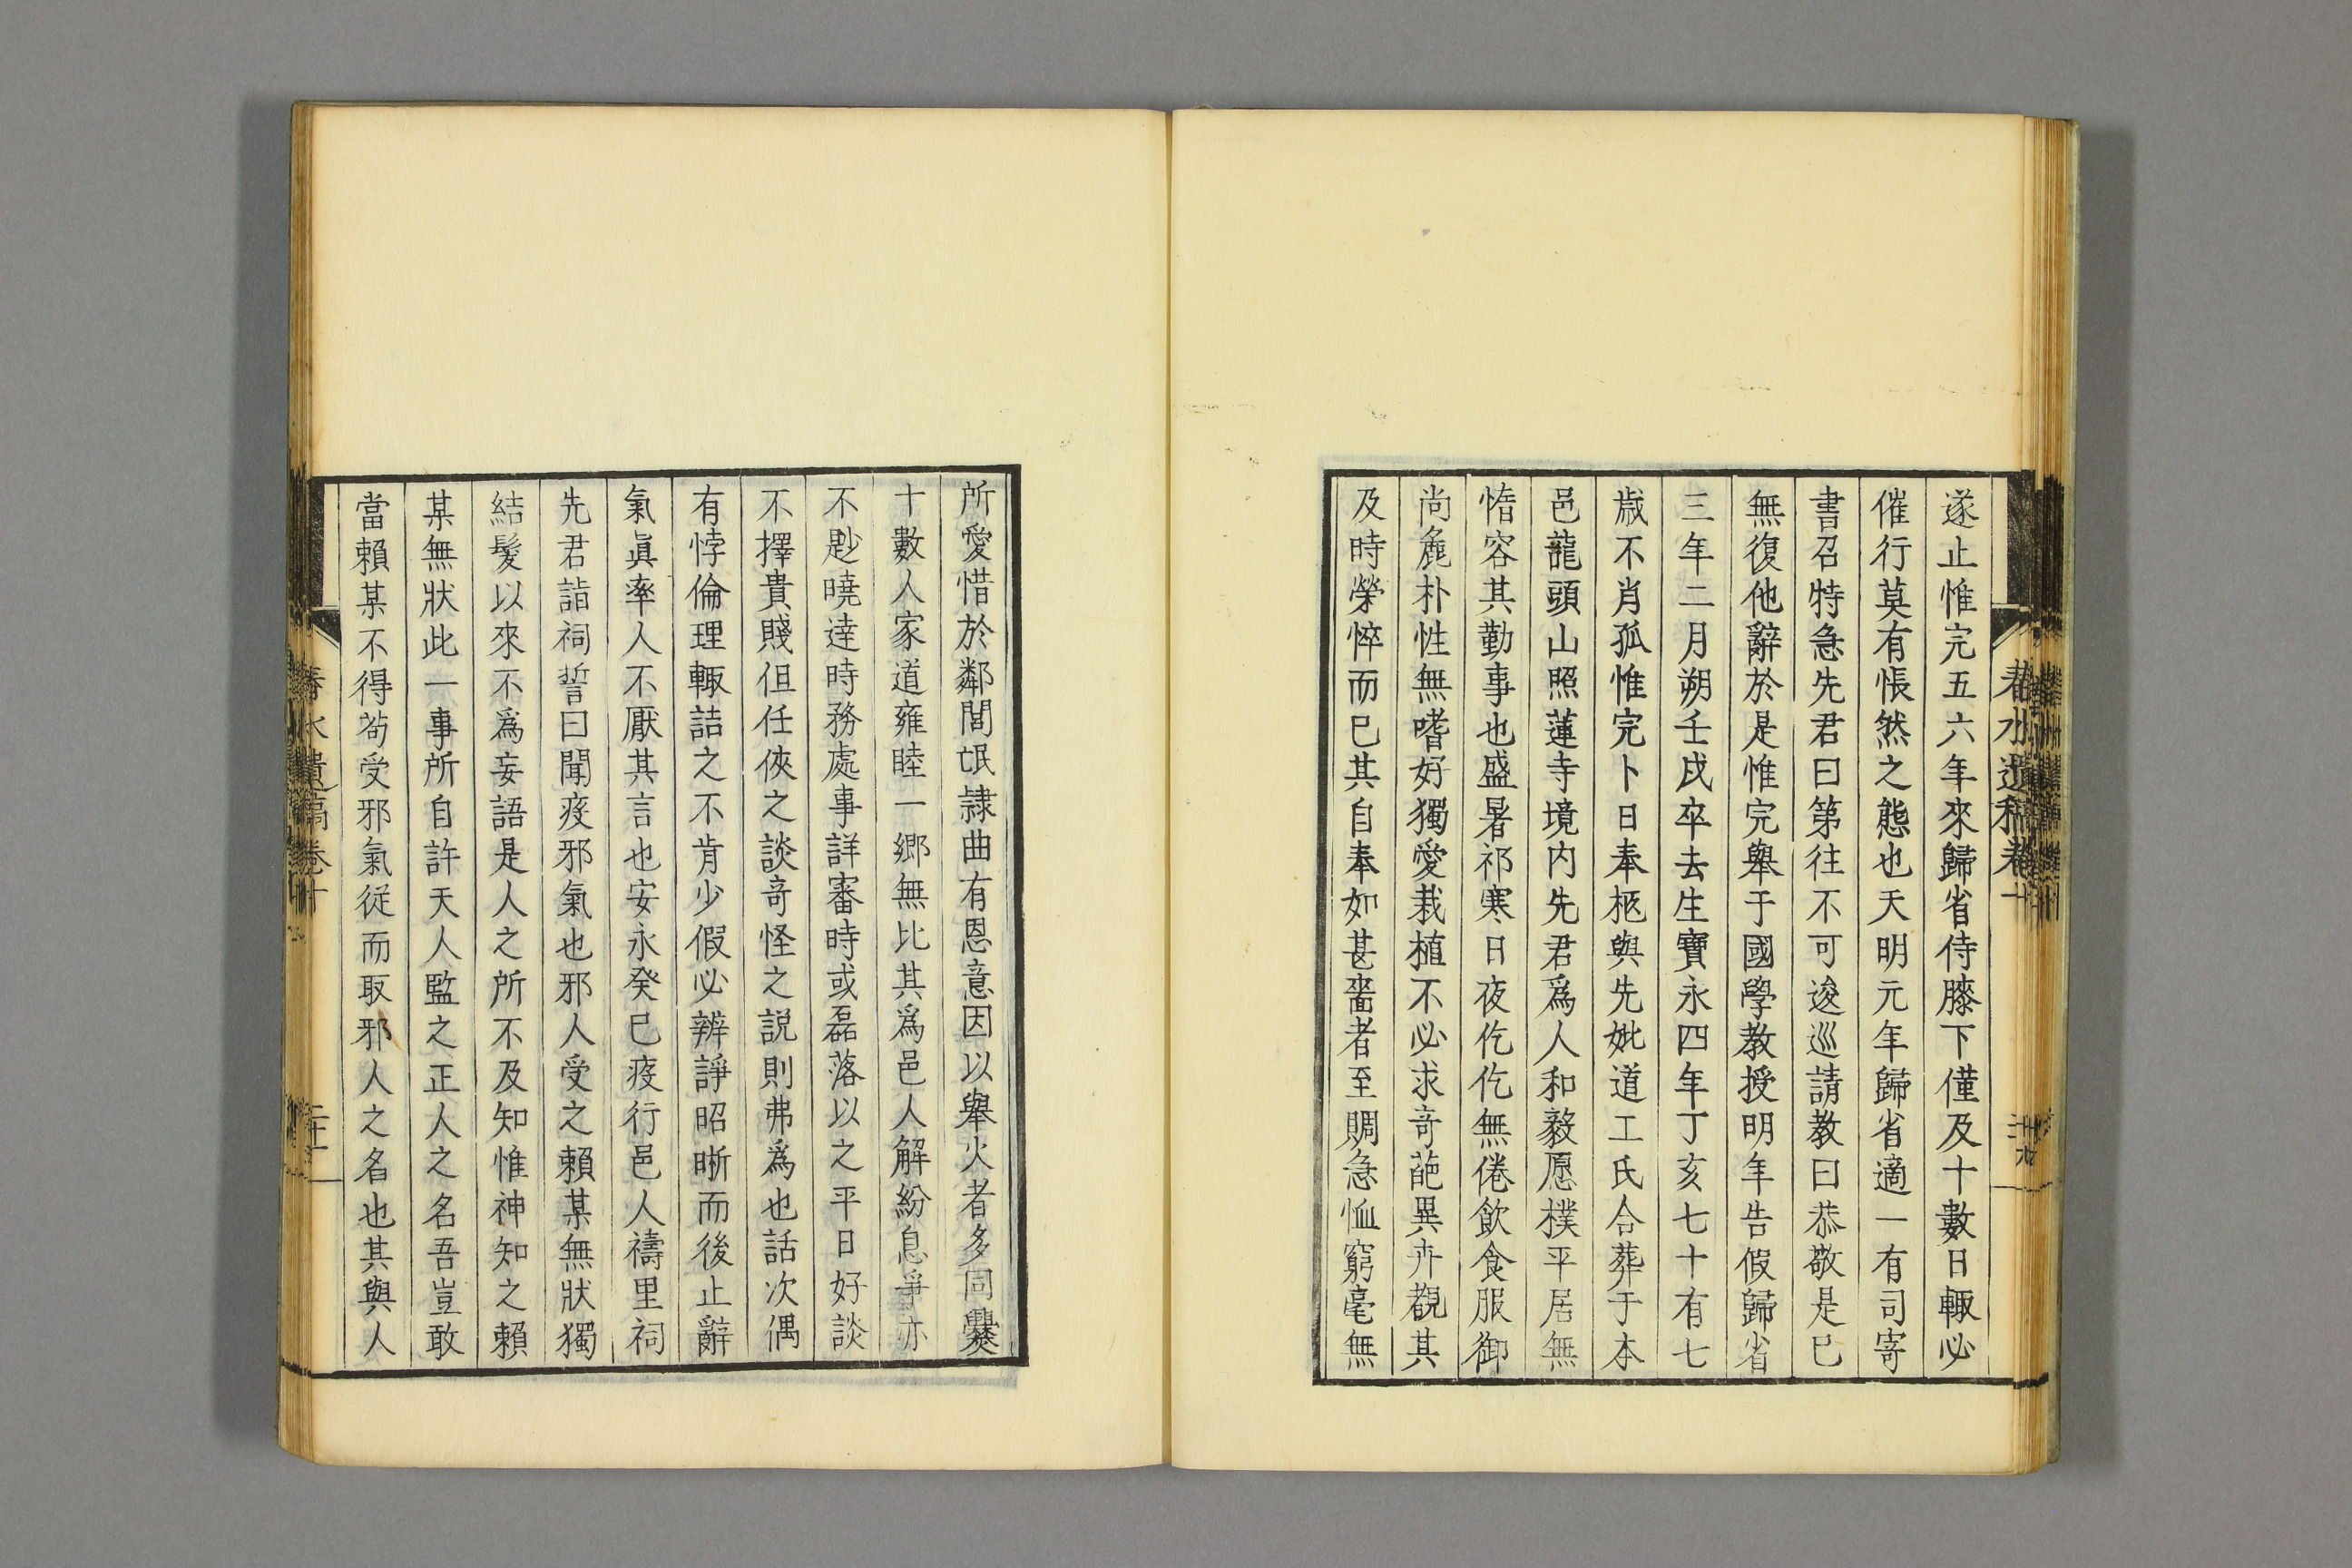 遂止惟完五六年來歸省侍膝下僅及十數日輙必
催行莫有悵然之態也天明元年歸省適一有司寄
書召特急先君曰第往不可逡巡請教曰恭敬是已
無復他辭於是惟完舉于國學教授明年告假歸省
三年二月朔壬戌卒去生寶永四年丁亥七十有七
歳不肖孤惟完卜日奉柩與先妣道工氏合葬于本
邑龍頭山照蓮寺境内先君爲人和毅愿樸平居無
惰容其勤事也盛暑祁寒日夜仡仡無倦飲食服御
尚麁朴性無嗜好獨愛栽植不必求奇葩異卉觀其
及時榮悴而已其自奉如甚嗇者至賙急恤窮毫無
所愛惜於鄰閭氓隷曲有恩意因以舉火者多同爨
十數人家道雍睦一郷無比其爲邑人解紛息爭亦
不尠曉達時務處事詳審時或磊落以之平日好談
不擇貴賤但任俠之談奇怪之説則弗爲也話次偶
有悖倫理輙詰之不肯少假必辨諍昭晰而後止辭
氣眞率人不厭其言也安永癸巳疫行邑人禱里祠
先君詣祠誓曰聞疫邪氣也邪人受之賴某無狀獨
結髪以來不爲妄語是人之所不及知惟神知之賴
某無狀此一事所自許天人監之正人之名吾豈敢
當賴某不得苟受邪氣従而取邪人之名也其與人
春水遺稿卷十